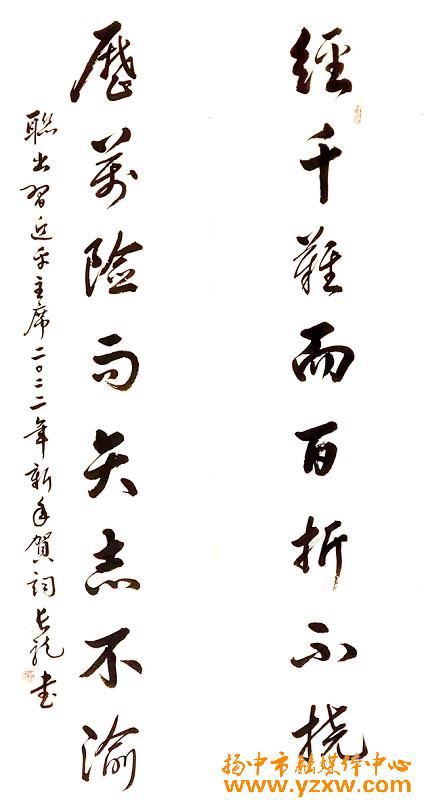 經千難而百折不撓
歷萬險而矢志不渝
聯出習近平主席二〇二二年新年賀詞長龍書
扬中市融媒体中心
www.yzxw.com